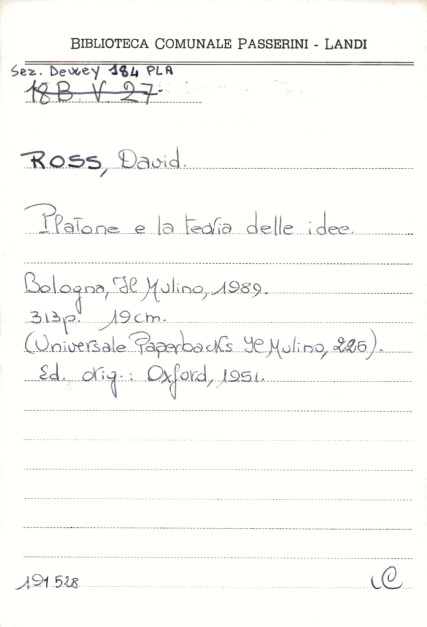 BIBLIOTECA COMUNALE PASSERINI - LANDI
Sez. Dewey 184 PLA
18 B. V. 27
ROSS, David.
Platone e la teoria delle idee.
Bologna, Il Mulino, 1989.
313p. 19cm.
(Universale Paperbacks Il Mulino, 226).
Ed. orig.: Oxford, 1951.
191528